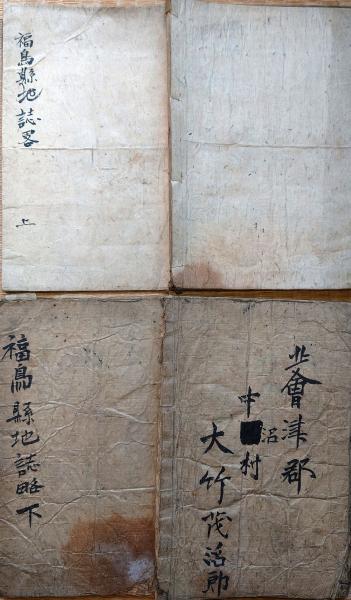 福島縣地誌畧
上
福島縣地誌略下
北會津郡
中沼村
大竹茂治郎